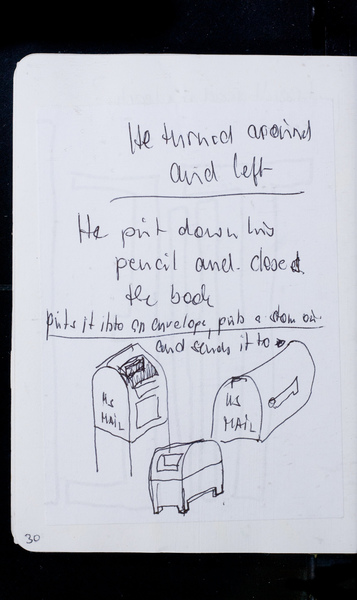 He turned around
and left
He put down his
pencil and closed
the book
puts it into an envelope, puts a stam on
and sends it to
US
MAIL
US
MAIL
30